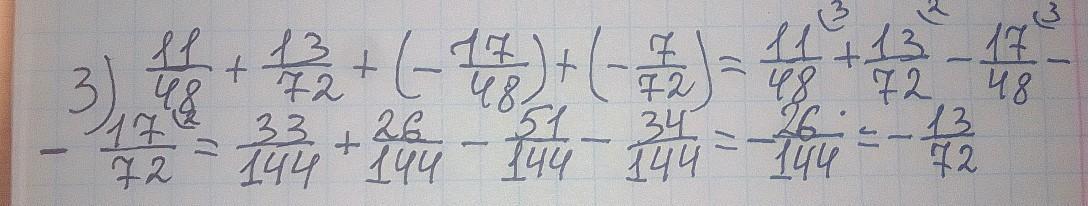 3) 11/48 + 13/72 + (- 17/48) + (- 7/72) = 11/48 (3 + 13/72 (2 - 17/48 (3 -
- 17/72 (2 = 33/144 + 26/144 - 51/144 - 34/144 = - 26/144 = - 13/72